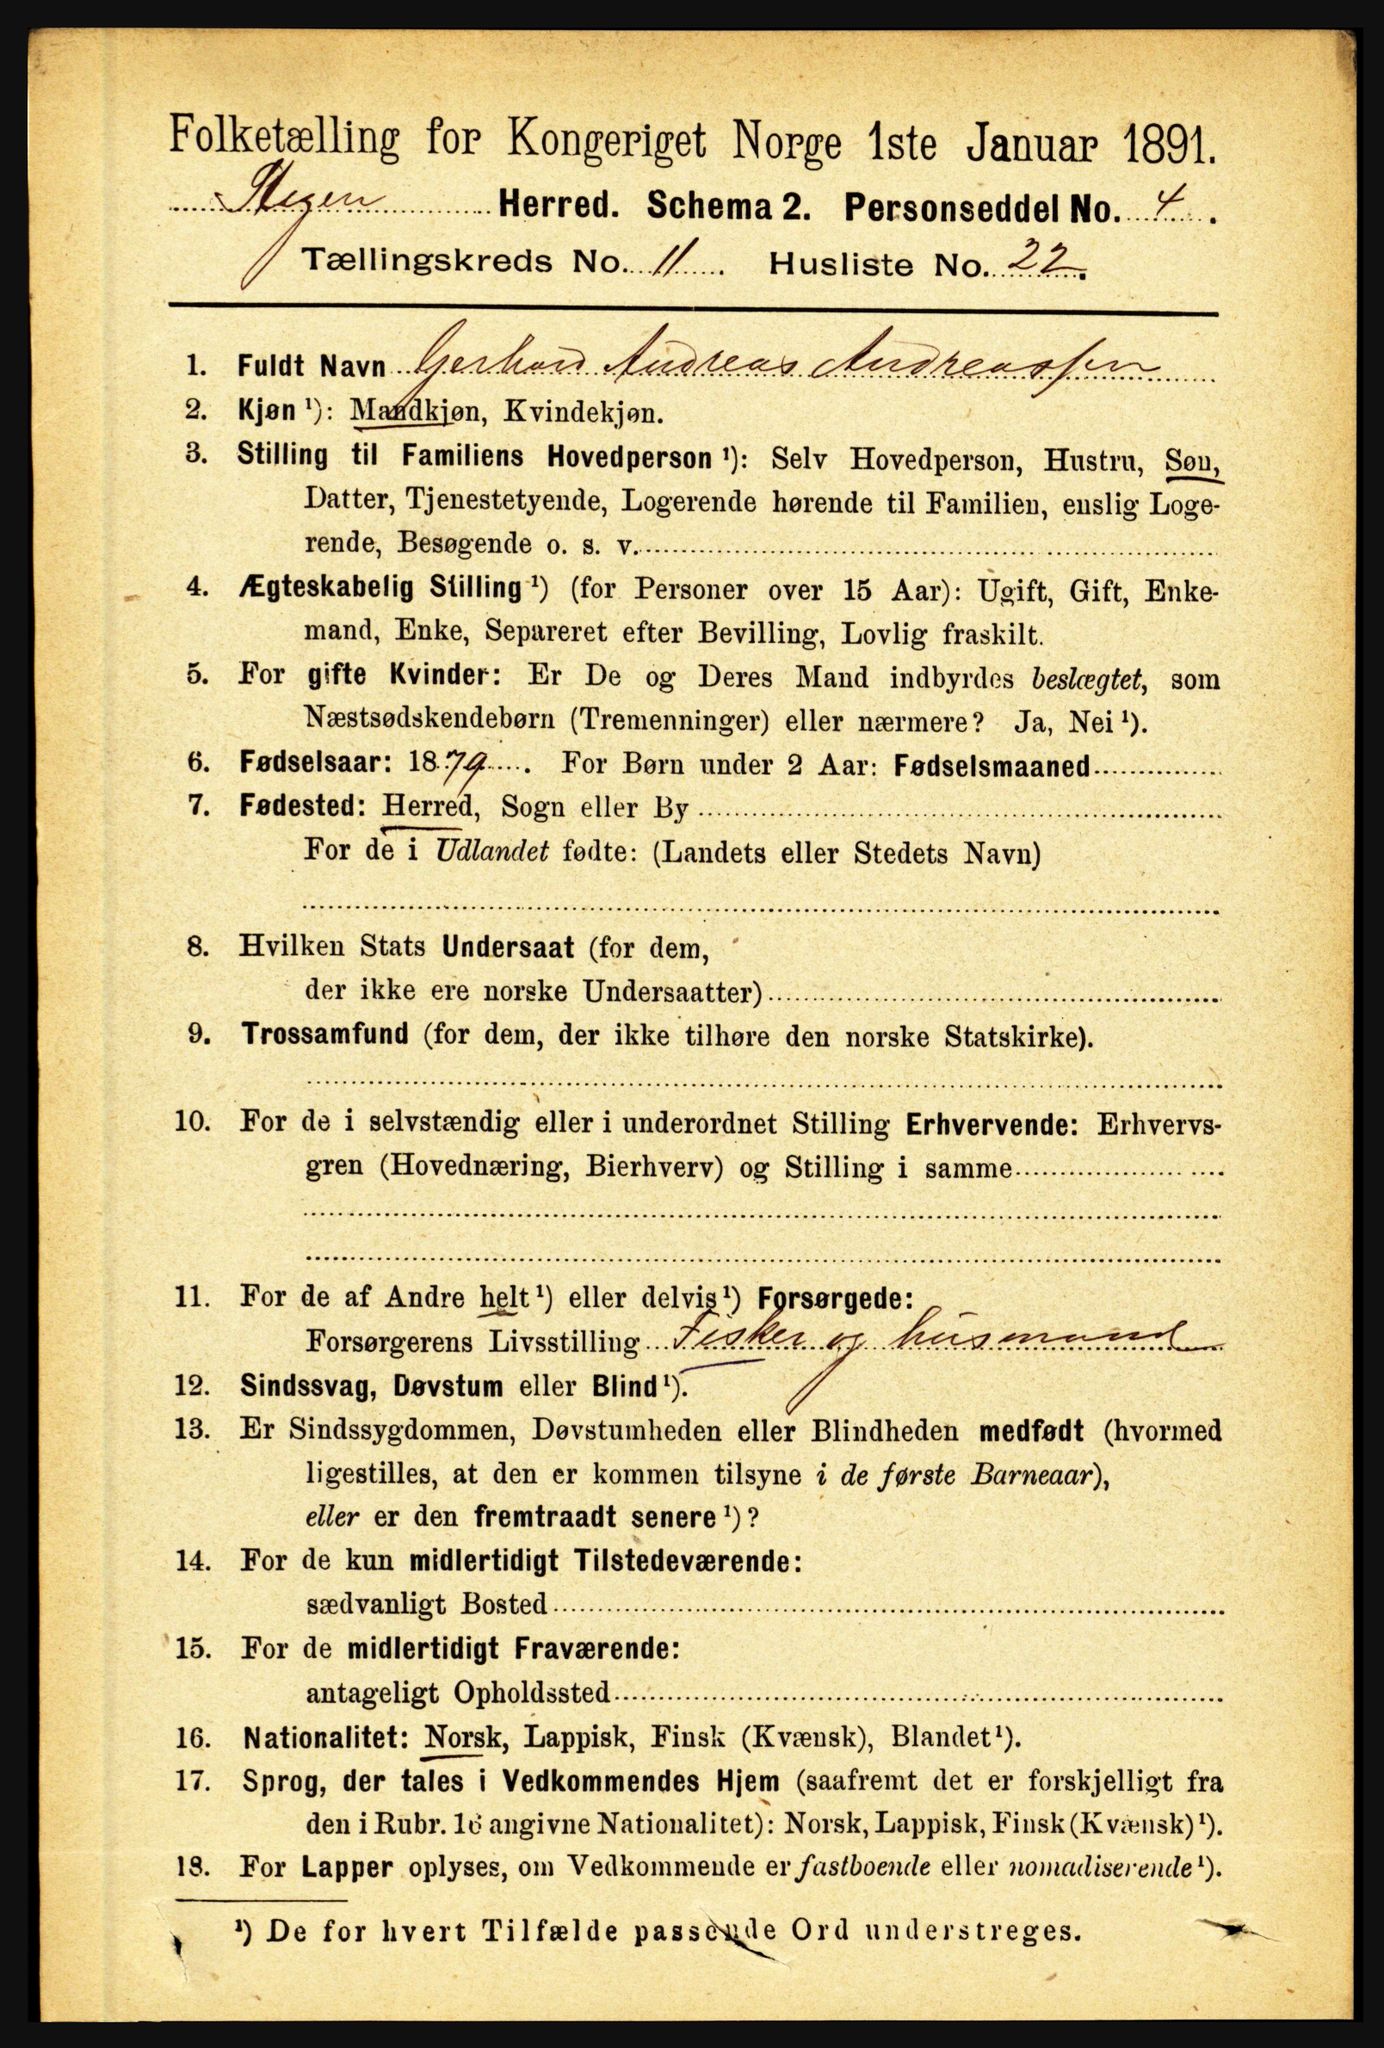 Folketælling for Kongeriget Norge 1ste Januar 1891.
Stegen Herred. Schema 2. Personseddel No. 4.
Tællingskreds No. 11. Husliste No. 22.
1. Fuldt Navn Gerhard Andreas Andreassen
2. Kjøn ¹): Mandkjøn, Kvindekjøn.
3. Stilling til Familiens Hovedperson ¹): Selv Hovedperson, Hustru, Søn,
Datter, Tjenestetyende, Logerende hørende til Familien, enslig Loge-
rende, Besøgende o. s. v.
4. Ægteskabelig Stilling ¹) (for Personer over 15 Aar): Ugift, Gift, Enke-
mand, Enke, Separeret efter Bevilling, Lovlig fraskilt.
5. For gifte Kvinder: Er De og Deres Mand indbyrdes beslægtet, som
Næstsødskendebørn (Tremenninger) eller nærmere? Ja, Nei ¹).
6. Fødselsaar: 1879. For Børn under 2 Aar: Fødselsmaaned
7. Fødested: Herred, Sogn eller By
For de i Udlandet fødte: (Landets eller Stedets Navn)
8. Hvilken Stats Undersaat (for dem,
der ikke ere norske Undersaatter)
9. Trossamfund (for dem, der ikke tilhøre den norske Statskirke).
10. For de i selvstændig eller i underordnet Stilling Erhvervende: Erhvervs-
gren (Hovednæring, Bierhverv) og Stilling i samme
11. For de af Andre helt ¹) eller delvis ¹) Forsørgede:
Forsørgerens Livsstilling Fisker og husmand
12. Sindssvag, Døvstum eller Blind ¹).
13. Er Sindssygdommen, Døvstumheden eller Blindheden medfødt (hvormed
ligestilles, at den er kommen tilsyne i de første Barneaar),
eller er den fremtraadt senere ¹)?
14. For de kun midlertidigt Tilstedeværende:
sædvanligt Bosted
15. For de midlertidigt Fraværende:
antageligt Opholdssted
16. Nationalitet: Norsk, Lappisk, Finsk (Kvænsk), Blandet ¹).
17. Sprog, der tales i Vedkommendes Hjem (saafremt det er forskjelligt fra
den i Rubr. 16 angivne Nationalitet): Norsk, Lappisk, Finsk (Kvænsk) ¹).
18. For Lapper oplyses, om Vedkommende er fastboende eller nomadiserende ¹).
¹) De for hvert Tilfælde passende Ord understreges.